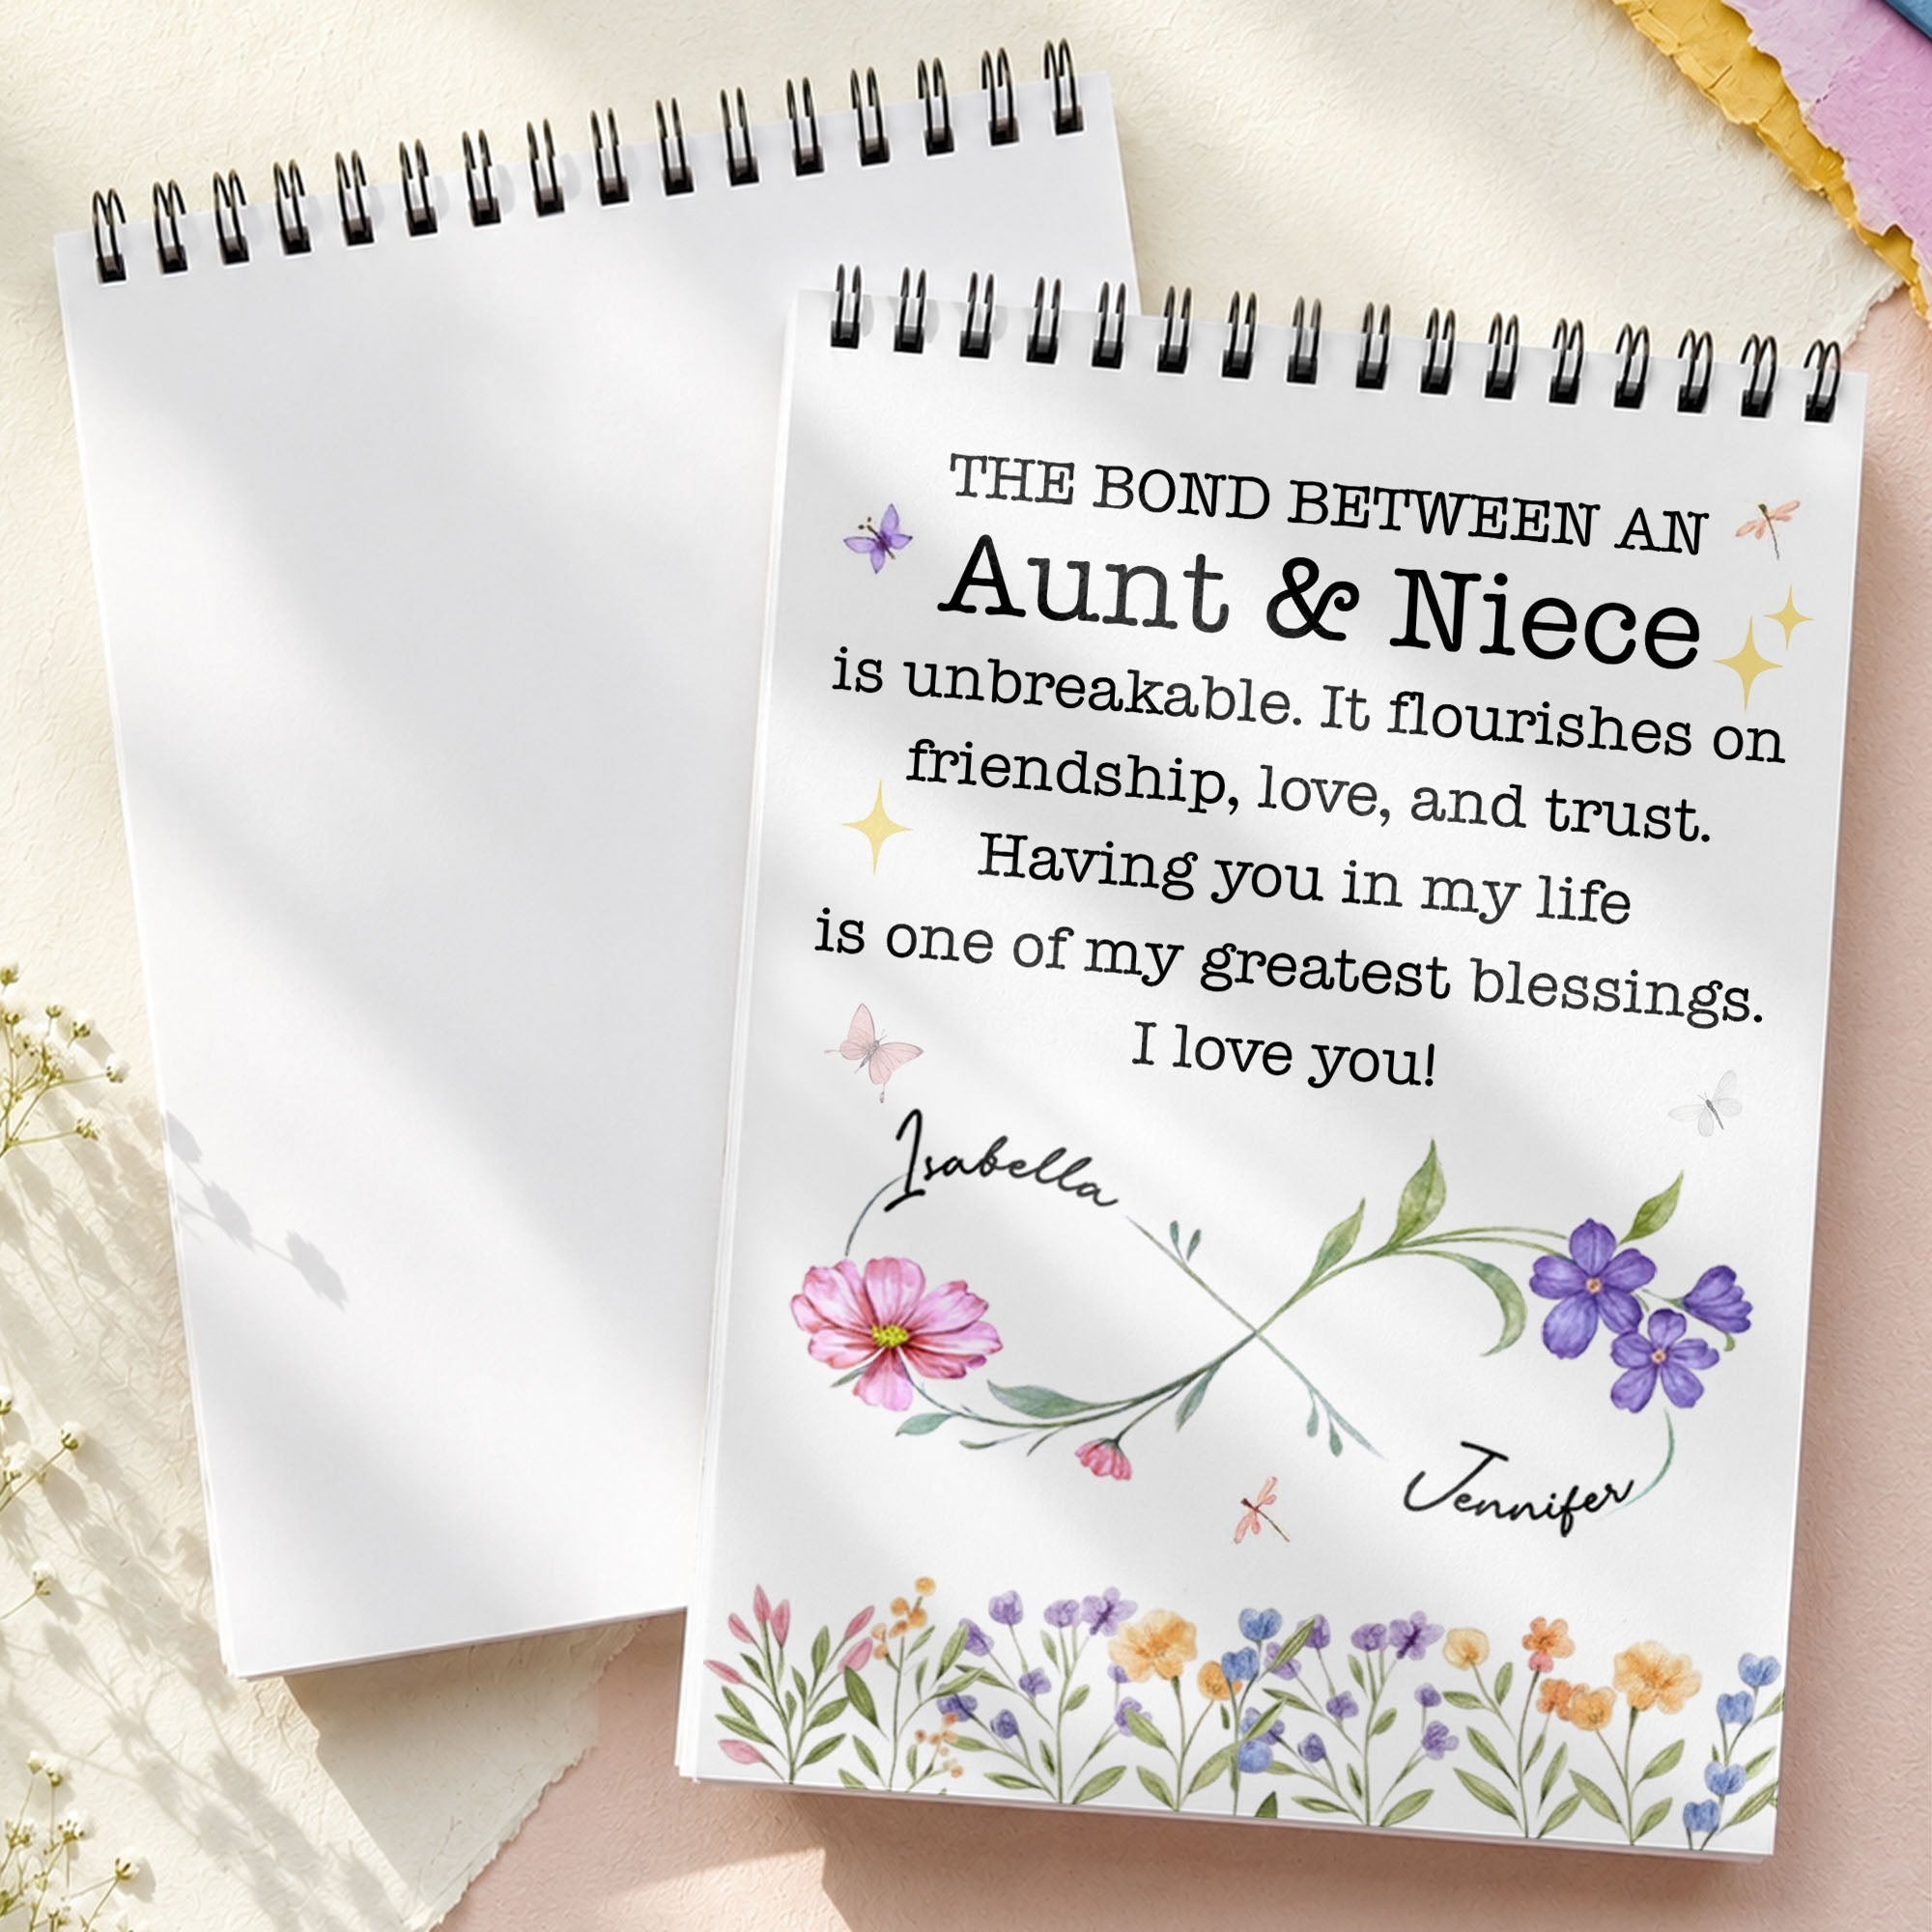 THE BOND BETWEEN AN
Aunt & Niece
is unbreakable. It flourishes on
friendship, love, and trust.
Having you in my life
is one of my greatest blessings.
I love you!
Isabella
Jennifer